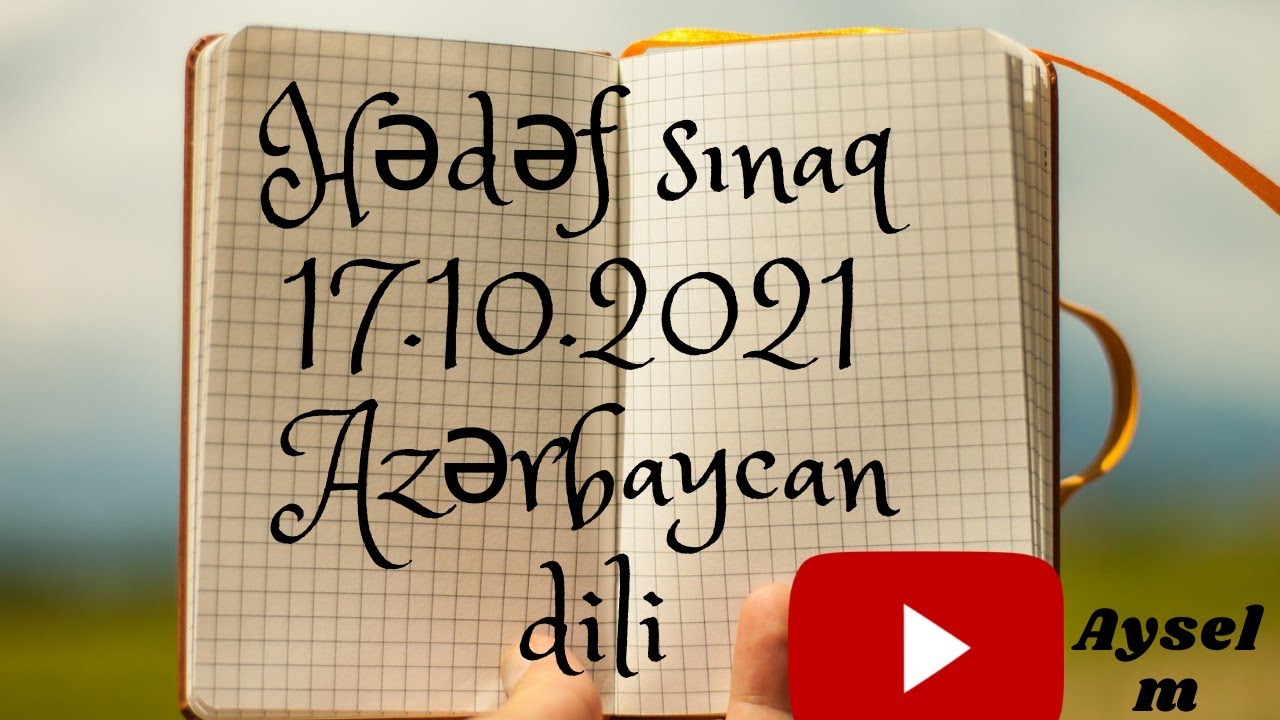 Hədəf sınaq
17.10.2021
Azərbaycan
dili
Aysel
m